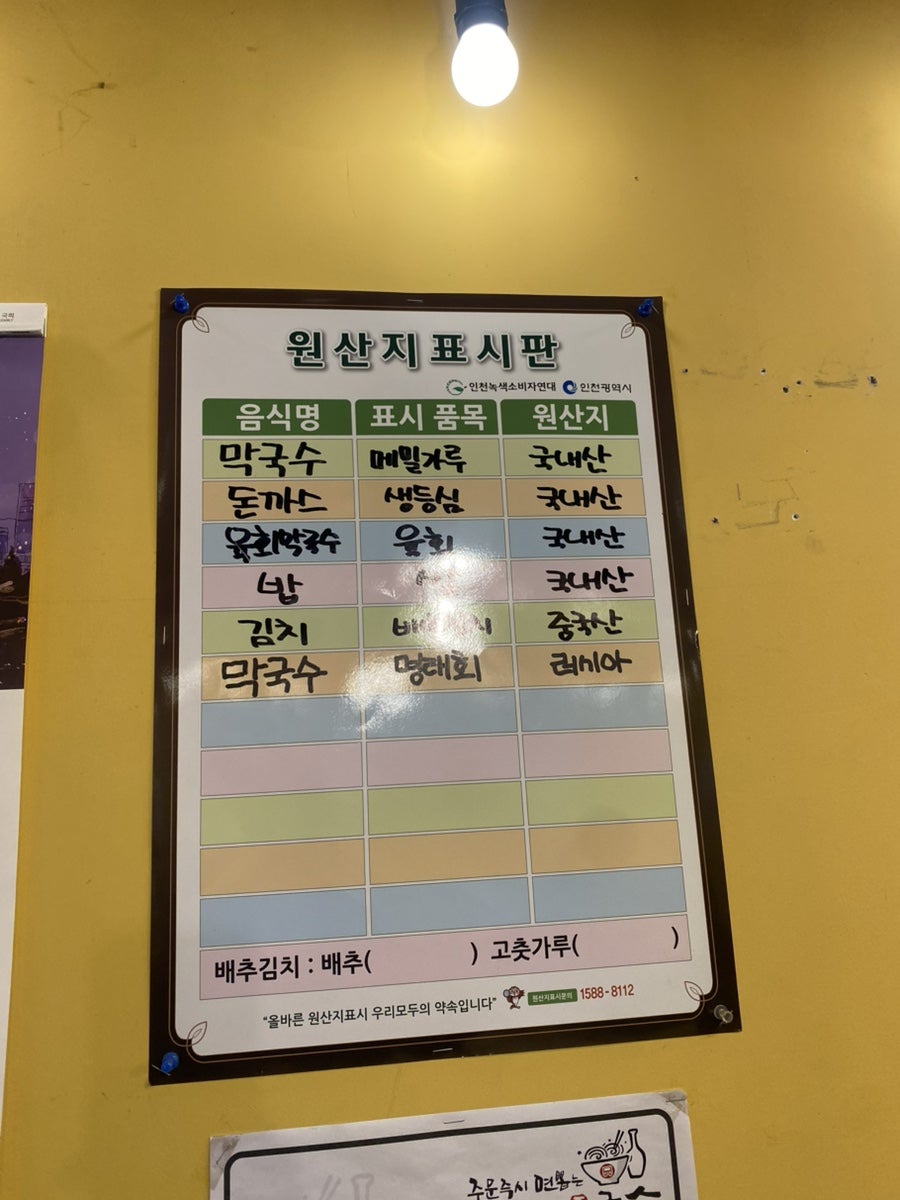 원산지표시판
인천녹색소비자연대 인천광역시
음식명 표시 품목 원산지
막국수 메밀가루 국내산
돈까스 생등심 국내산
육회막국수 육회 국내산
밥 국내산
김치 중국산
막국수 명태회 러시아
배추김치 : 배추( ) 고춧가루( )
"올바른 원산지표시 우리모두의 약속입니다" 원산지표시문의 1588-8112
주문즉시 면뽑는